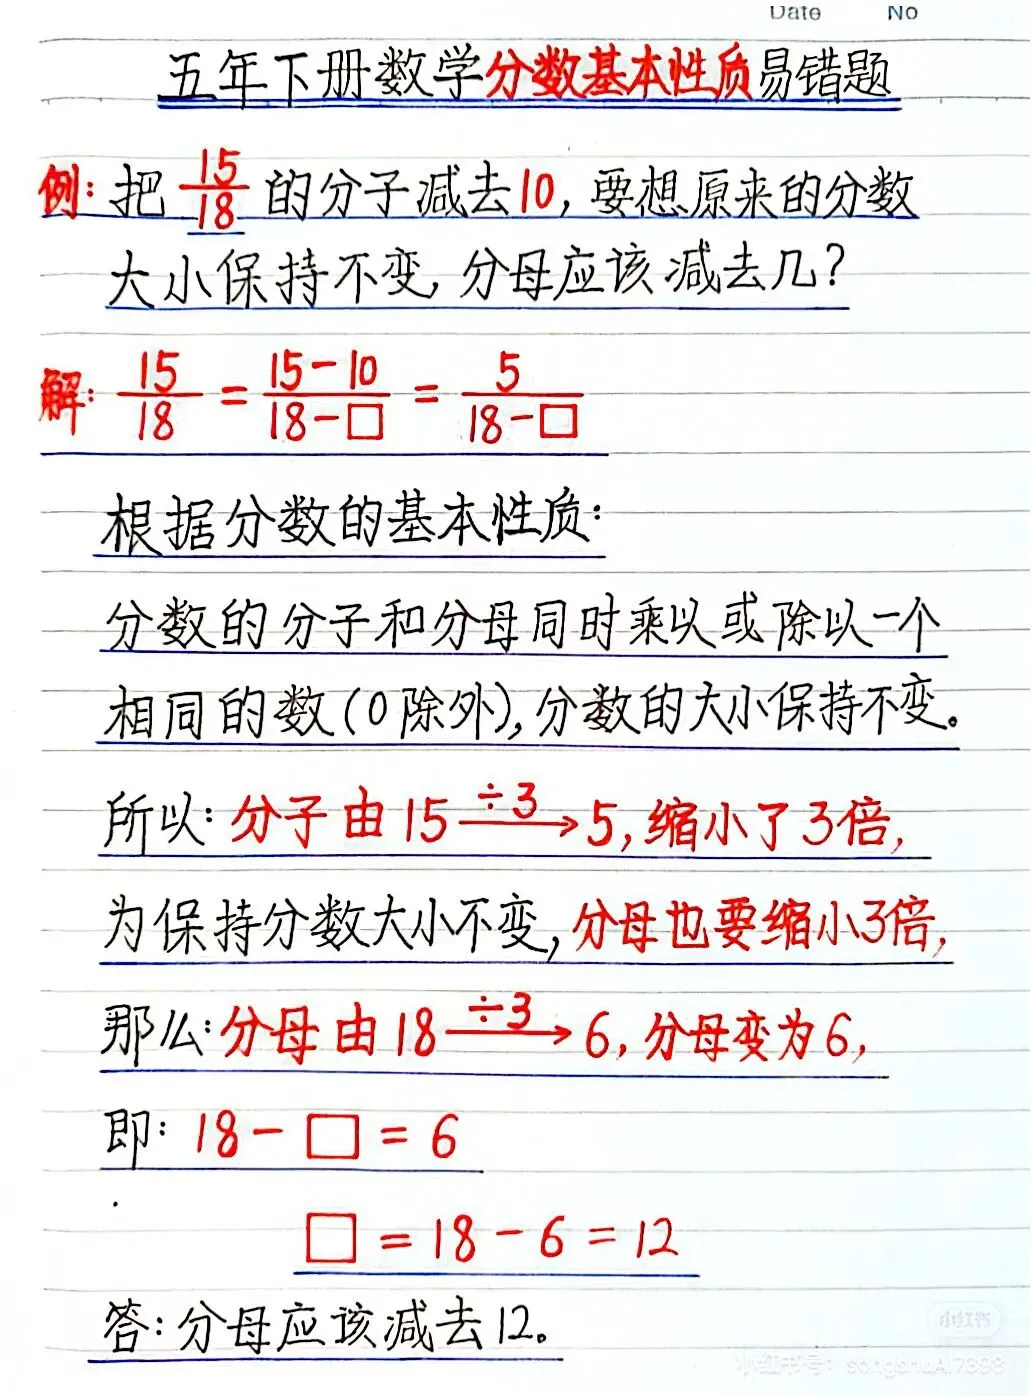 Date No
五年下册数学分数基本性质易错题
例: 把 15/18 的分子减去10, 要想原来的分数
大小保持不变, 分母应该减去几?
解: 15/18 = (15-10)/(18-□) = 5/(18-□)
根据分数的基本性质:
分数的分子和分母同时乘以或除以一个
相同的数(0除外), 分数的大小保持不变。
所以: 分子由15 ÷3→ 5, 缩小了3倍,
为保持分数大小不变, 分母也要缩小3倍,
那么: 分母由18 ÷3→ 6, 分母变为6,
即: 18-□=6
□=18-6=12
答: 分母应该减去12。
小红书